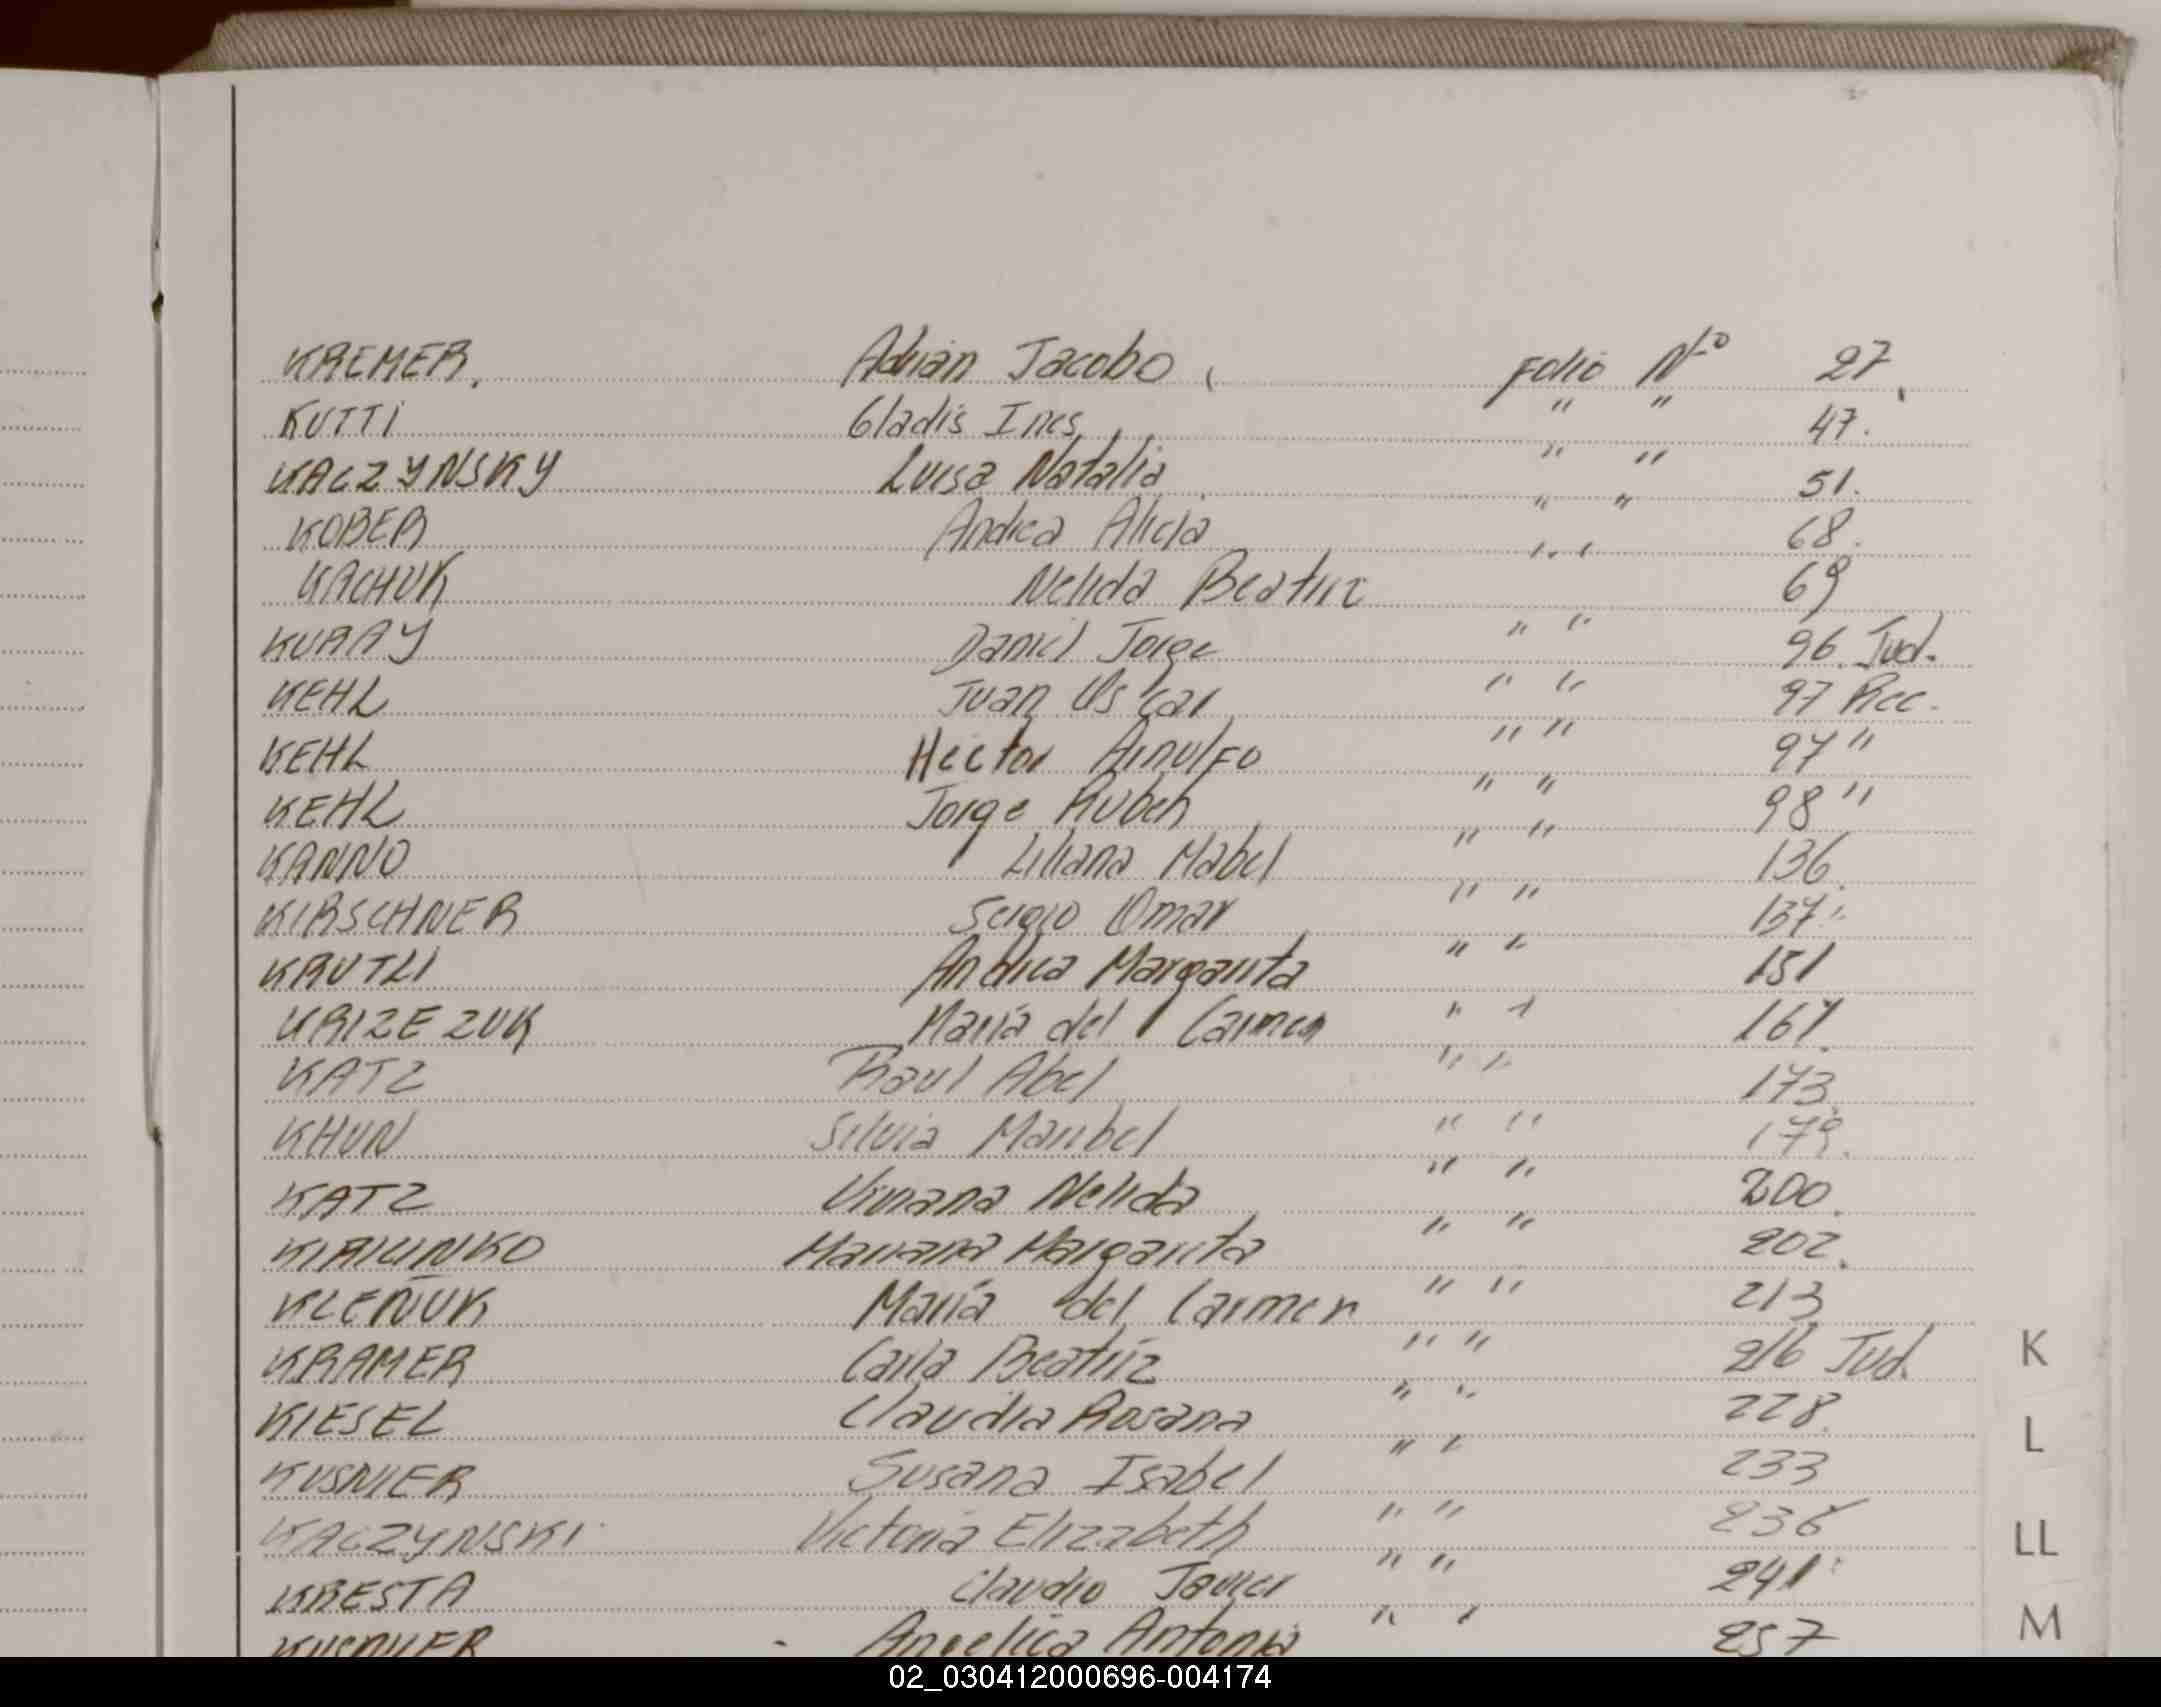 KREMER, Adrian Jacobo, Folio Nº 27.
KUTTI Gladis Ines, " " 47.
KACZYNSKY Luisa Natalia " " 51.
KOBER Andrea Alicia " " 68.
KACHUK Nelida Beatriz " " 69
KURAY Daniel Jorge " " 96. Jud.
KEHL Juan Oscar " " 97 Rec.
KEHL Hector Arnulfo " " 97 "
KEHL Jorge Ruben " " 98 "
KANNO Liliana Mabel " " 136.
KIRSCHNER Sergio Omar " " 137.
KRUTLI Andrea Margarita " " 151
KRIZEZUK María del Carmen " " 167.
KATZ Raul Abel " " 173.
KHUN Silvia Maribel " " 179.
KATZ Viviana Nelida " " 200.
Mariana Margarita " " 202.
KLEÑUK María del Carmen " " 213
KRAMER Carla Beatriz " " 216 Jud.
KIESEL Claudia Rosana " " 228.
KUSNIER Susana Isabel " " 233
KACZYNSKI Victoria Elizabeth " " 236
KRESTA Claudio Javier " " 241.
Angelica Antonia " " 257
K
L
LL
M
02_030412000696-004174